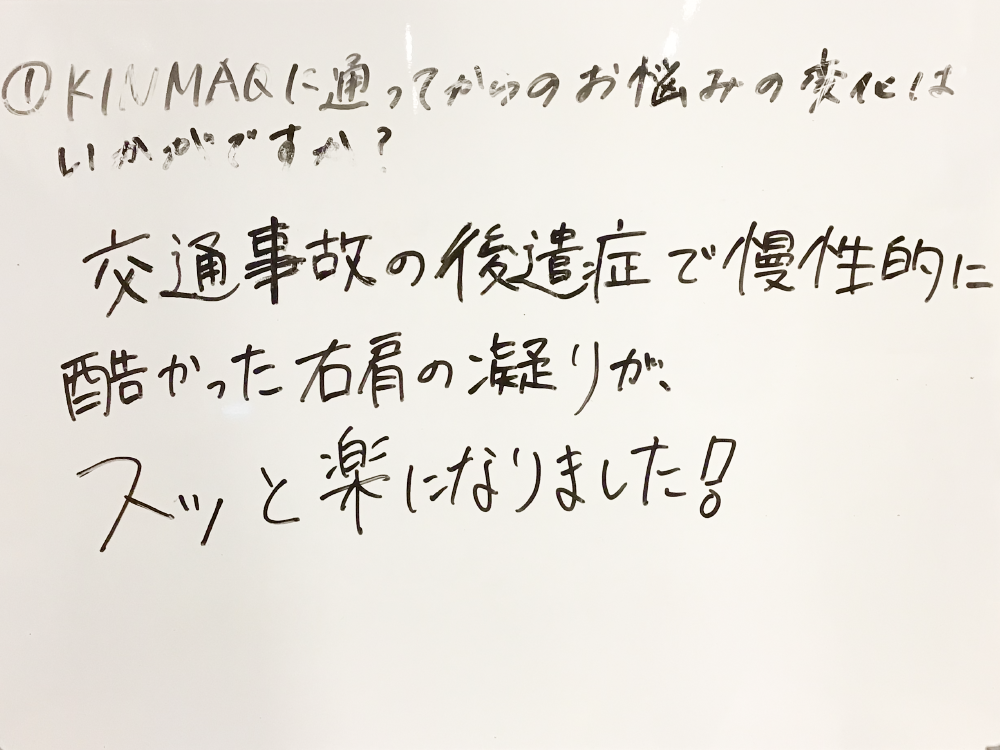 ①KINMAQに通ってからのお悩みの変化は
いかがですか？
交通事故の後遺症で慢性的に
酷かった右肩の凝りが、
スッと楽になりました！